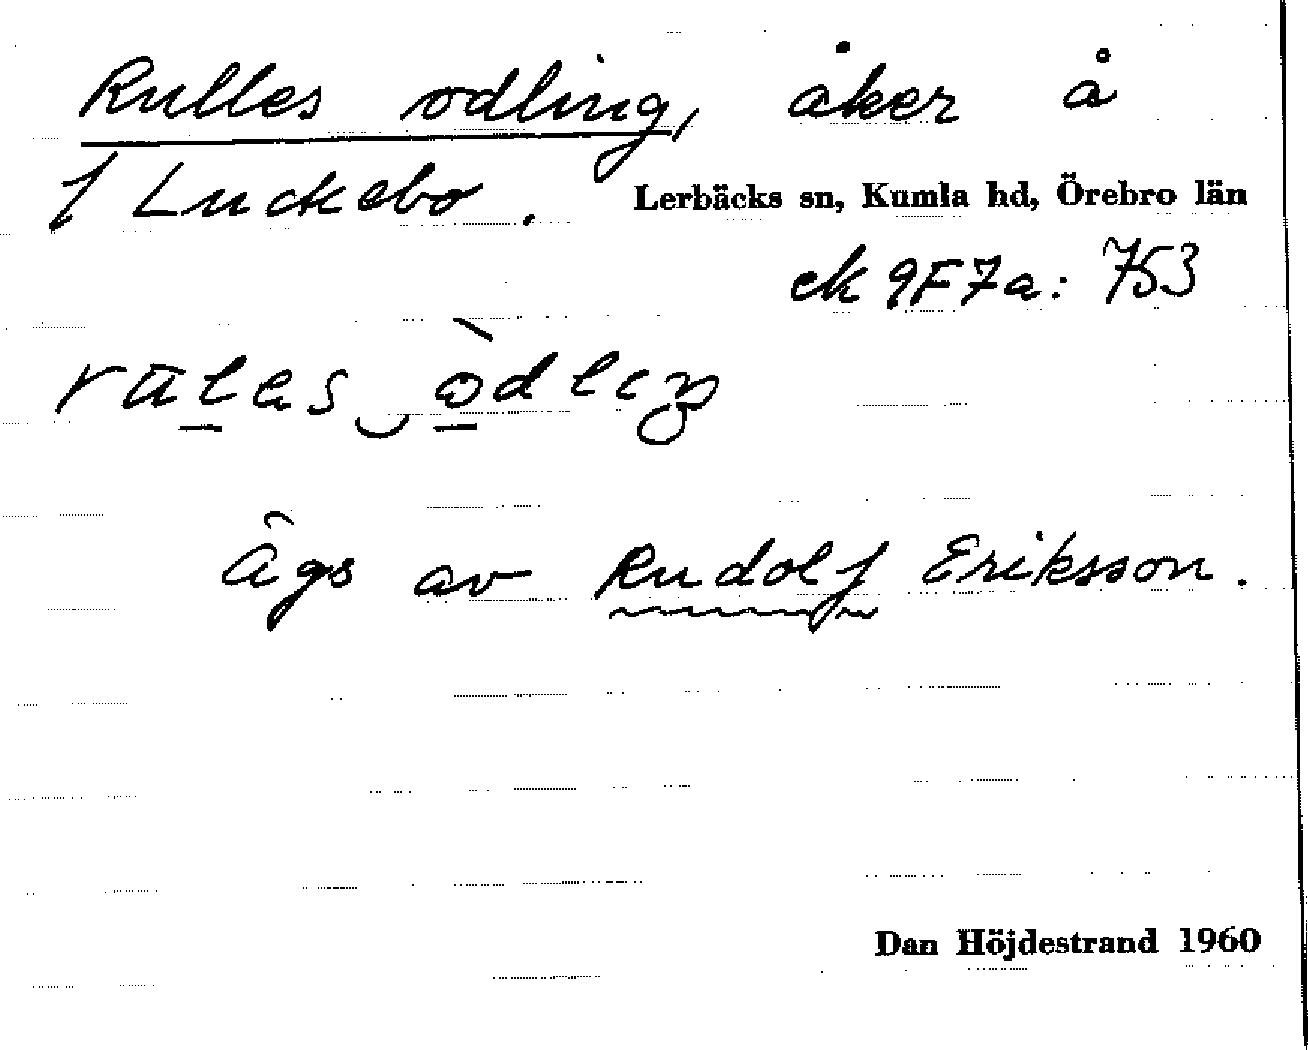 Rulles odling, åker å
f Luckebo.
Lerbäcks sn, Kumla hd, Örebro län
ek 9F7a: 753
rules òdlıŋ
Ägs av Rudolf Eriksson.
Dan Höjdestrand 1960